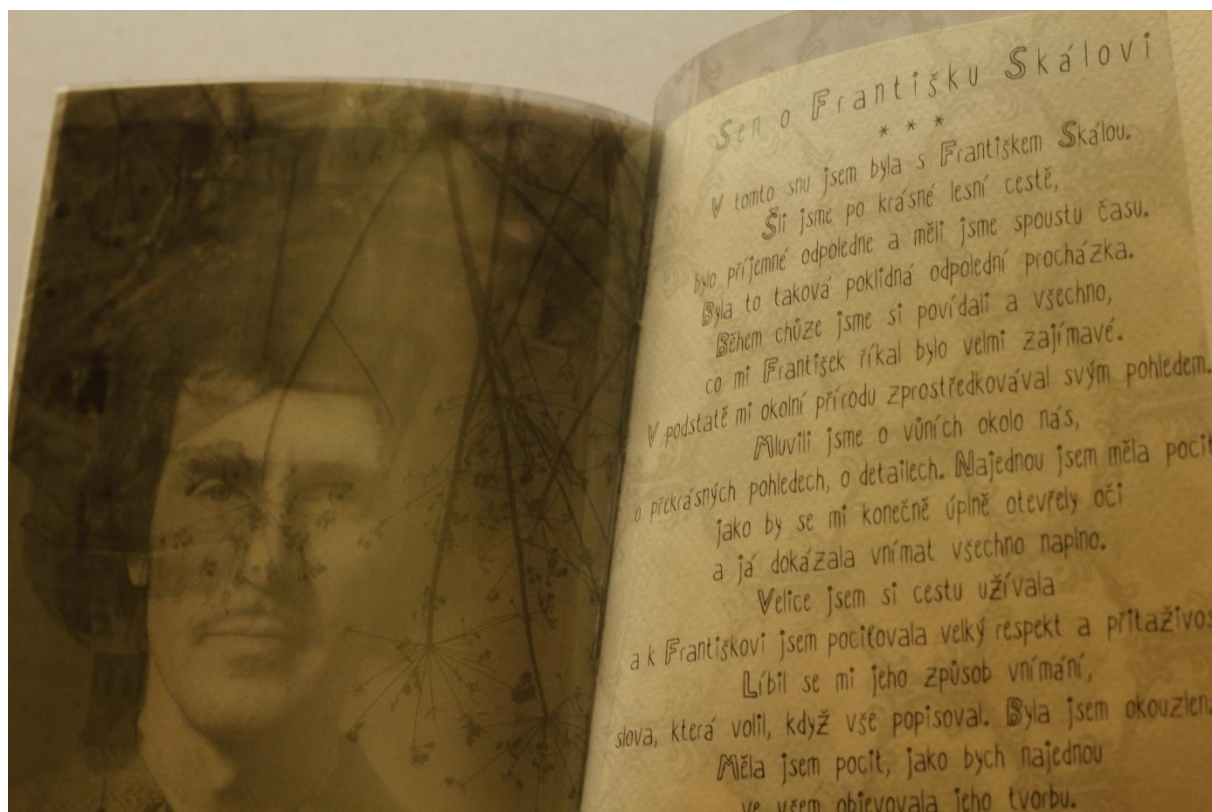 Sen o Františku Skálovi
* * *
V tomto snu jsem byla s Františkem Skálou.
Šli jsme po krásné lesní cestě,
bylo příjemné odpoledne a měli jsme spoustu času.
Byla to taková poklidná odpolední procházka.
Během chůze jsme si povídali a všechno,
co mi František říkal bylo velmi zajímavé.
V podstatě mi okolní přírodu zprostředkovával svým pohledem.
Mluvili jsme o vůních okolo nás,
o překrásných pohledech, o detailech. Najednou jsem měla pocit
jako by se mi konečně úplně otevřely oči
a já dokázala vnímat všechno naplno.
Velice jsem si cestu užívala
a k Františkovi jsem pociťovala velký respekt a přitaživos
Líbil se mi jeho způsob vnímání,
slova, která volil, když vše popisoval. Byla jsem okouzlen
Měla jsem pocit, jako bych najednou
ve všem objevovala jeho tvorbu.